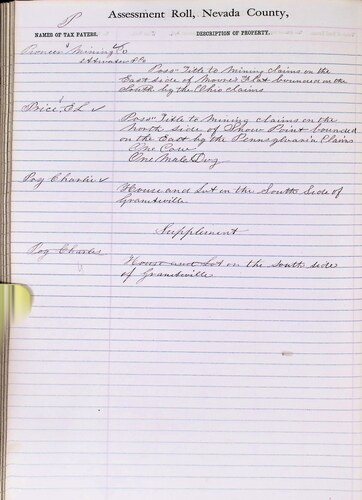 P
Assessment Roll, Nevada County,
NAMES OF TAX PAYERS.
DESCRIPTION OF PROPERTY.
Pioneer Mining Co
Atwater & Co
Poss Title to Mining Claims on the
East side of Moores Flat bounded on the
South by the Ohio claims
Price, E L ✓
Poss Title to Mining claims on the
North side of Snow Point bounded
on the East by the Pennsylvania Claims
One Cow
One Male Dog
Poy Charlie ✓
House and Lot on the South Side of
Graniteville
Supplement
Poy Charles
House and Lot on the south side
of Graniteville